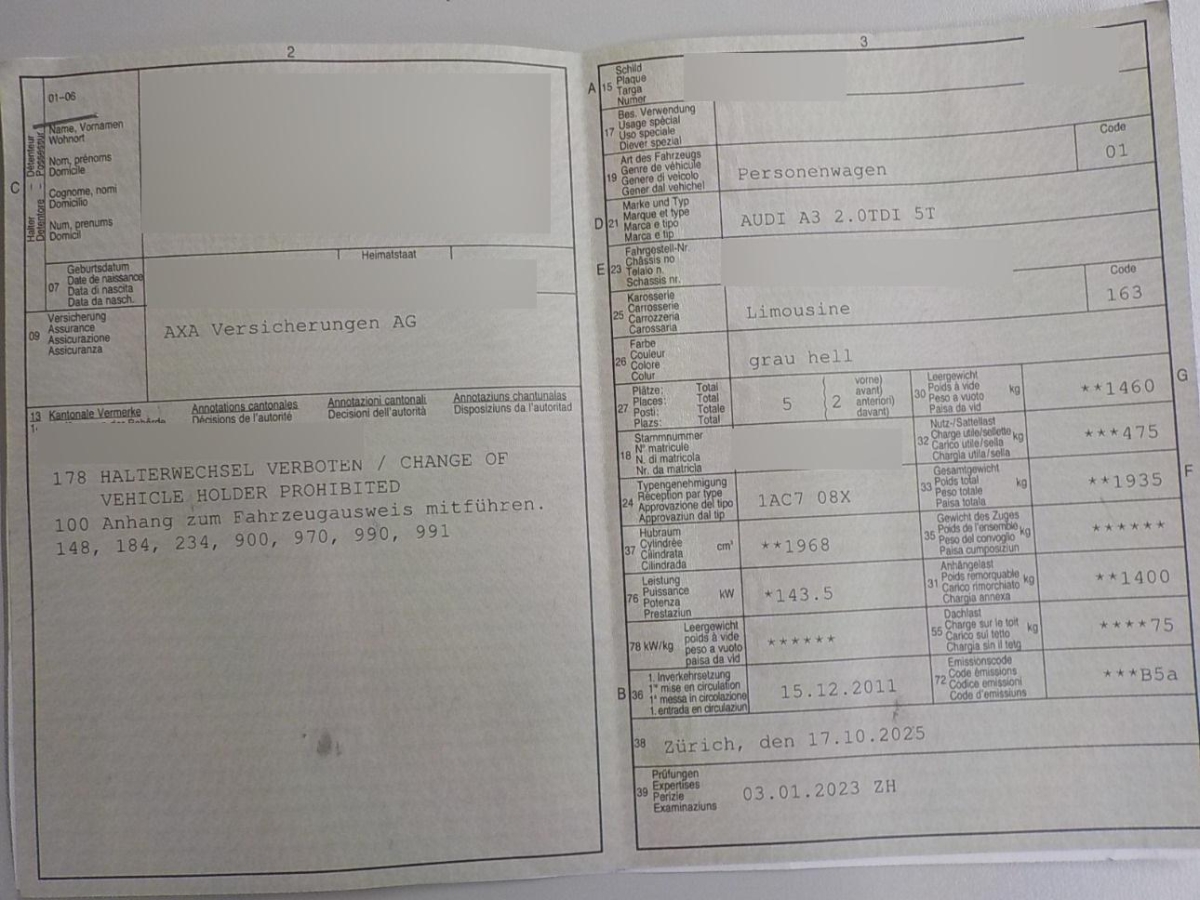 2
01-06
Halter - Détenteur
Detentore - Possessur
C
Name, Vornamen
Wohnort
Nom, prénoms
Domicile
Cognome, nomi
Domicilio
Num, prenums
Domicil
Heimatstaat
07
Geburtsdatum
Date de naissance
Data di nascita
Data da nasch.
09
Versicherung
Assurance
Assicurazione
Assicuranza
AXA Versicherungen AG
13 Kantonale Vermerke Annotations cantonales Annotazioni cantonali Annotaziuns chantunalas
Décisions de l'autorité Decisioni dell'autorità Disposiziuns da l'autoritad
178 HALTERWECHSEL VERBOTEN / CHANGE OF
VEHICLE HOLDER PROHIBITED
100 Anhang zum Fahrzeugausweis mitführen.
148, 184, 234, 900, 970, 990, 991
3
A 15
Schild
Plaque
Targa
Numer
17
Bes. Verwendung
Usage spécial
Uso speciale
Diever spezial
19
Art des Fahrzeugs
Genre de véhicule
Genere di veicolo
Gener dal vehichel
Personenwagen
Code
01
D 21
Marke und Typ
Marque et type
Marca e tipo
Marca e tip
AUDI A3 2.0TDI 5T
E 23
Fahrgestell-Nr.
Châssis no
Telaio n.
Schassis nr.
25
Karosserie
Carrosserie
Carrozzeria
Carossaria
Limousine
Code
163
26
Farbe
Couleur
Colore
Colur
grau hell
27
Plätze: Total
Places: Total
Posti: Totale
Plazs: Total
5
2
vorne)
avant)
anteriori)
davant)
30
Leergewicht
Poids à vide
Peso a vuoto
Paisa da vid
kg
**1460
G
18
Stammnummer
N° matricule
N. di matricola
Nr. da matricla
32
Nutz-/Sattellast
Charge utile/sellette
Carico utile/sella
Chargia utila/sella
kg
***475
24
Typengenehmigung
Réception par type
Approvazione del tipo
Approvaziun dal tip
1AC7 08X
33
Gesamtgewicht
Poids total
Peso totale
Paisa totala
kg
**1935
F
37
Hubraum
Cylindrée
Cilindrata
Cilindrada
cm³
**1968
35
Gewicht des Zuges
Poids de l'ensemble
Peso del convoglio
Paisa cumposiziun
kg
******
76
Leistung
Puissance
Potenza
Prestaziun
kW
*143.5
31
Anhängelast
Poids remorquable
Carico rimorchiato
Chargia annexa
kg
**1400
78 kW/kg
Leergewicht
poids à vide
peso a vuoto
paisa da vid
******
55
Dachlast
Charge sur le toit
Carico sul tetto
Chargia sin il tetg
kg
****75
B 36
1. Inverkehrsetzung
1re mise en circulation
1a messa in circolazione
1. entrada en circulaziun
15.12.2011
72
Emissionscode
Code émissions
Codice emissioni
Code d'emissiuns
***B5a
38
Zürich, den 17.10.2025
39
Prüfungen
Expertises
Perizie
Examinaziuns
03.01.2023 ZH